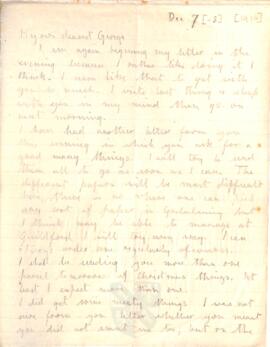 Dec 7 [-8] [1916]
My own dearest George
I am again begining my letter in the
evening because I rather like doing it I
think. I never like that to get with
you so much. I write last thing & sleep
with you in my mind then go on
next morning.
I have had another letter from you
this evening in which you ask for a
good many things. I will try to send
them all to go as soon as I can. The
different papers will be most difficult
for there is no where one can get
any sort of paper in Godalming but
I think I may be able to manage at
Guildford. I will try any way. I can
order one regularly of course.
I shall be sending you more than one
parcel tomorrow of Christmas things. At
least I expect more than one.
I did get some meaty things. I was not
sure from your letter whether you meant
you did not want me to, but on the